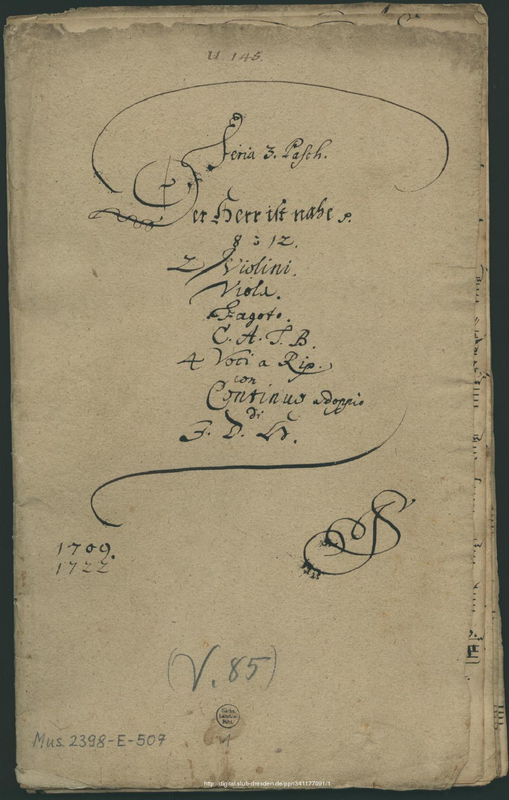 U. 145.
Feria 3. Pasch.
Der Herr ist nahe p.
8 ã 12.
2 Violini.
Viola.
Fagoto.
C. A. T. B.
4 Voci a Rip.
con
Continuo adoppio
di
1709.
1722
(V. 85)
Mus. 2398-E-507
http://digital.slub-dresden.de/ppn341177091/1